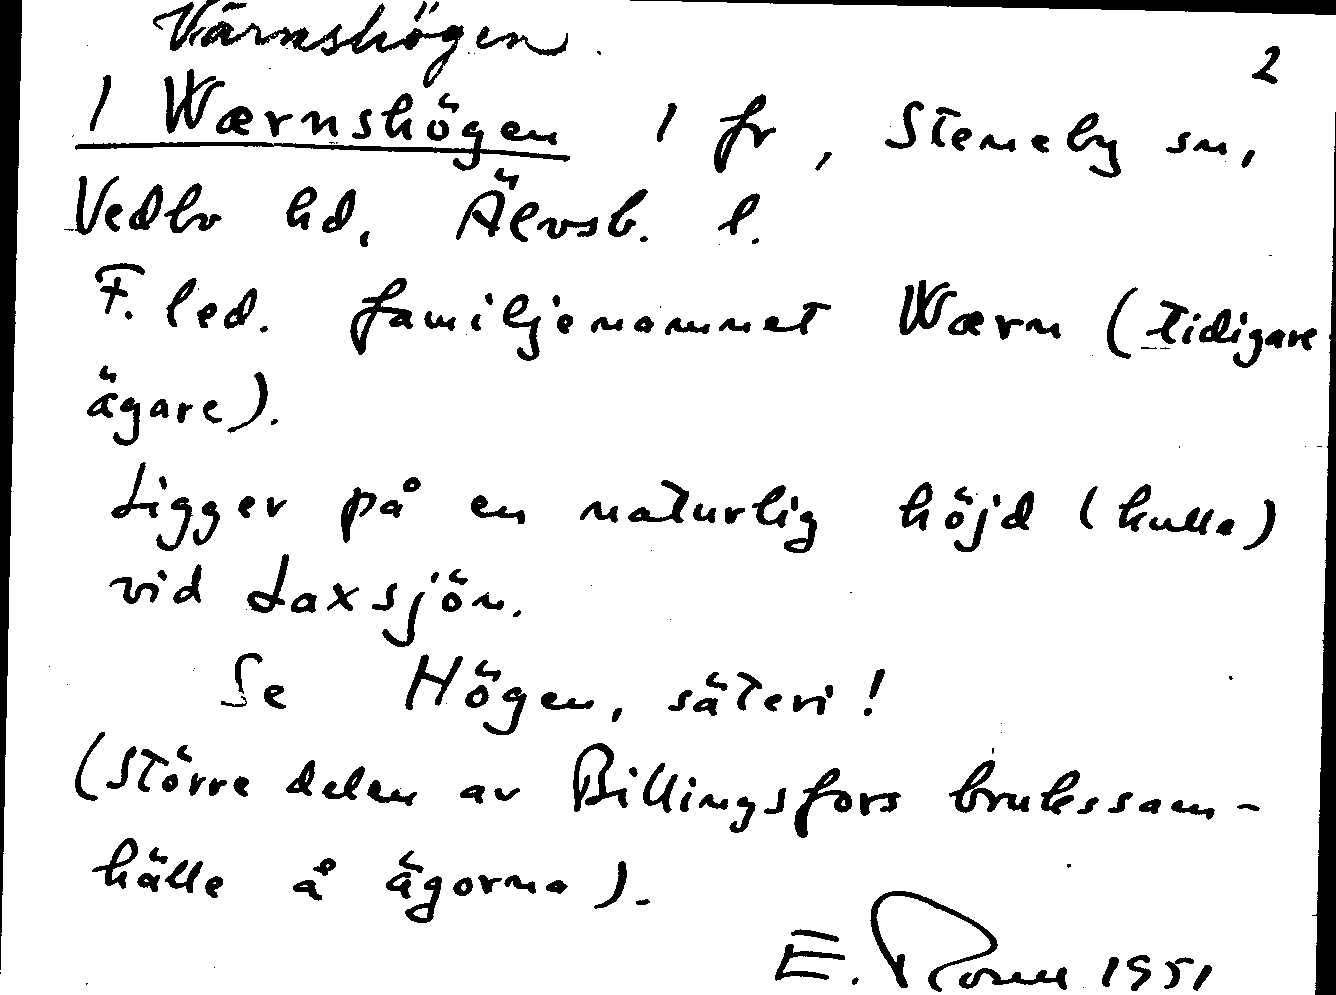 Värnshögen.
2
/ Wærnshögen / fr, Steneby sn,
Vedbo hd, Älvsb. l.
F. led. familjenamnet Wærn (tidigare
ägare).
Ligger på en naturlig höjd (kulle)
vid Laxsjön.
Se Högen, säteri!
(större delen av Billingsfors brukssam-
hälle å ägorna).
E. 1951